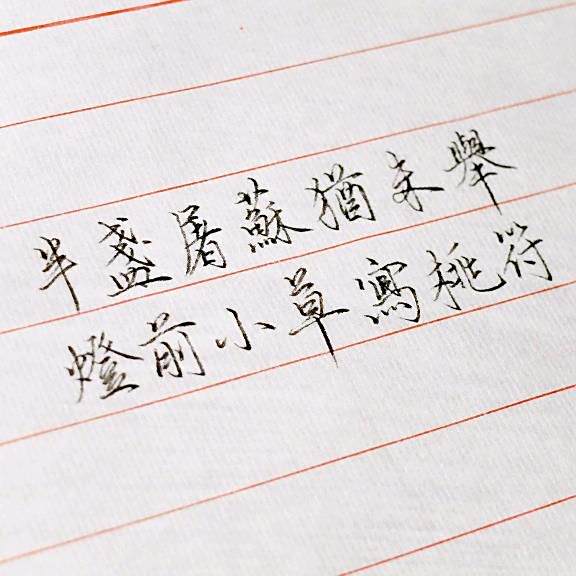 半盞屠蘇猶未舉
燈前小草寫桃符